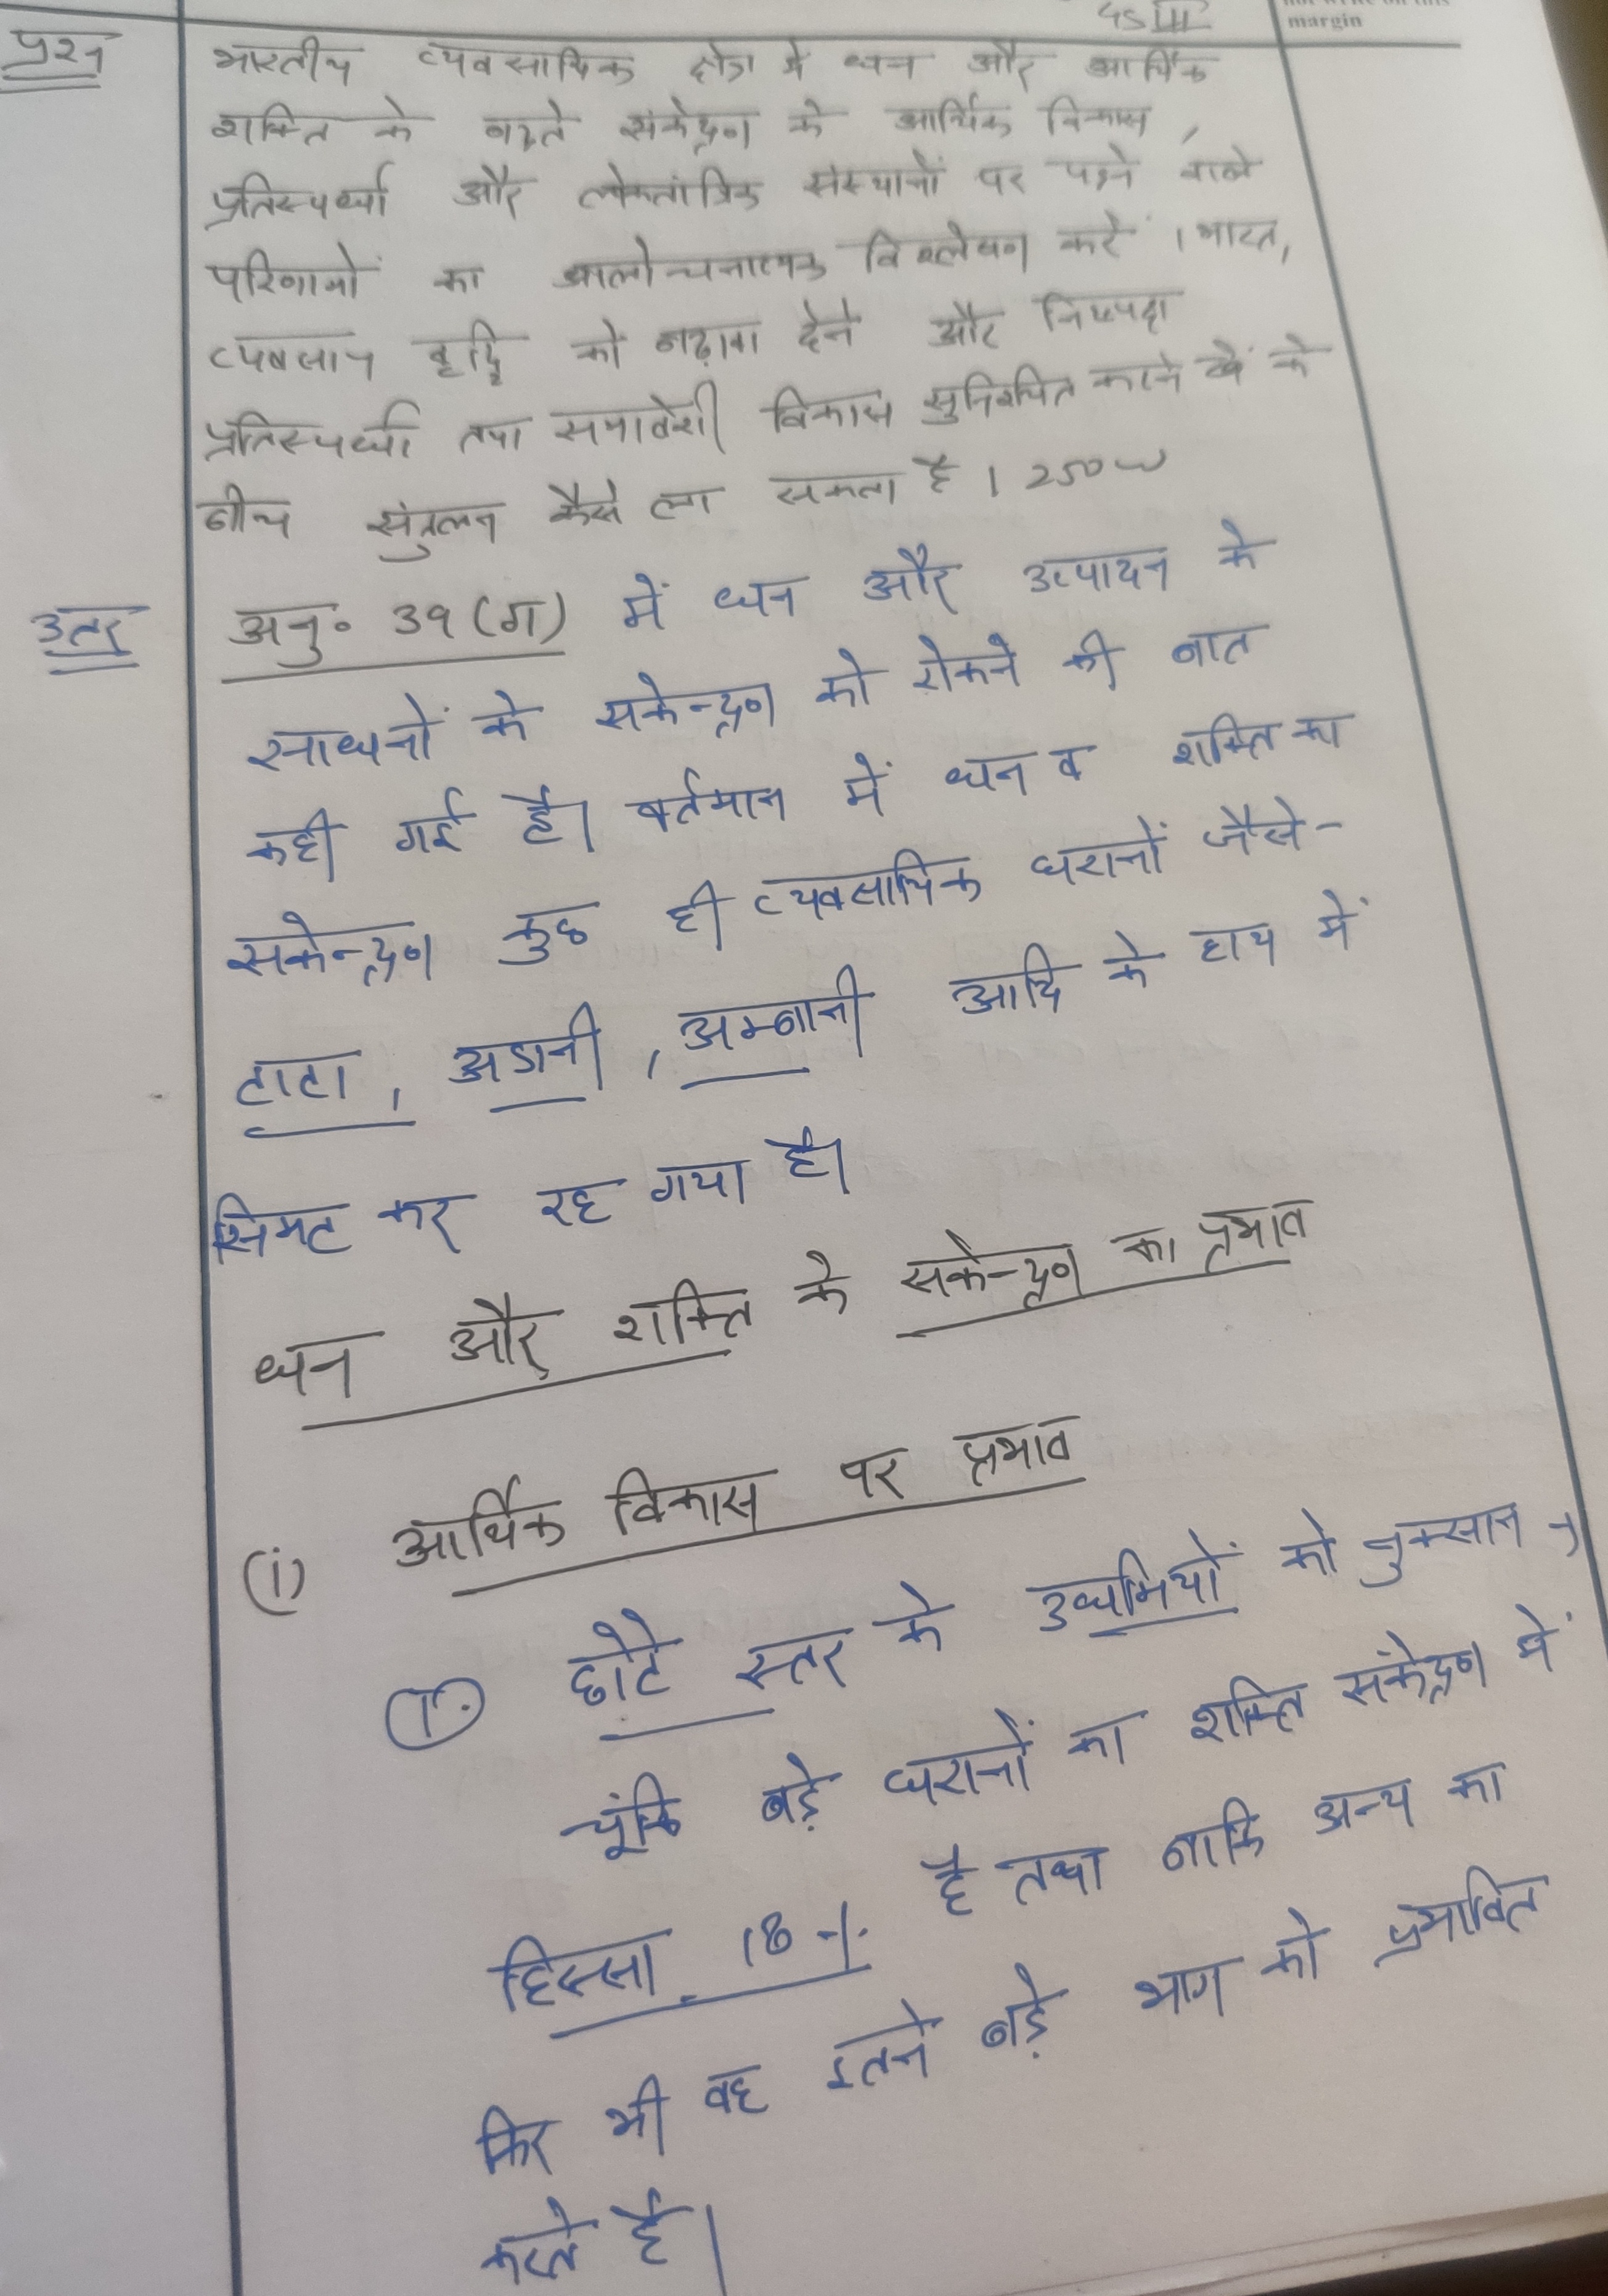 GS III
margin
प्रश्न
भारतीय व्यवसायिक क्षेत्र मे धन और आर्थिक
शक्ति के बढ़ते संकेद्रण के आर्थिक विकास,
प्रतिस्पर्ध्धा और लोकतांत्रिक संस्थानों पर पड़ने वाले
परिणामों का आलोचनात्मक विश्लेषण करें। भारत,
व्यवसाय वृद्दि को बढ़ावा देने और निष्पक्ष
प्रतिस्पर्ध्धा तथा समावेशी विकास सुनिश्चित करने के
बीच संतुलन कैसे ला सकता है। 250 w
उत्तर
अनु० 39 (ग) में धन और उत्पादन के
साधनों के सकेन्द्रण को रोकने की बात
कही गई है। वर्तमान में धन व शक्ति का
सकेन्द्रण कुछ ही व्यवसायिक घरानों जैसे-
टाटा, अडानी, अम्बानी आदि के हाथ में
सिमट कर रह गया है।
धन और शक्ति के सकेन्द्रण का प्रभाव
(i) आर्थिक विकास पर प्रभाव
1. छोटे स्तर के उद्यमियों को नुक्सान →
चूंकि बड़े घरानों का शक्ति संकेद्रण में
हिस्सा 18% है तथा बाकि अन्य का
फिर भी वह इतने बड़े भाग को प्रभावित
करते है।